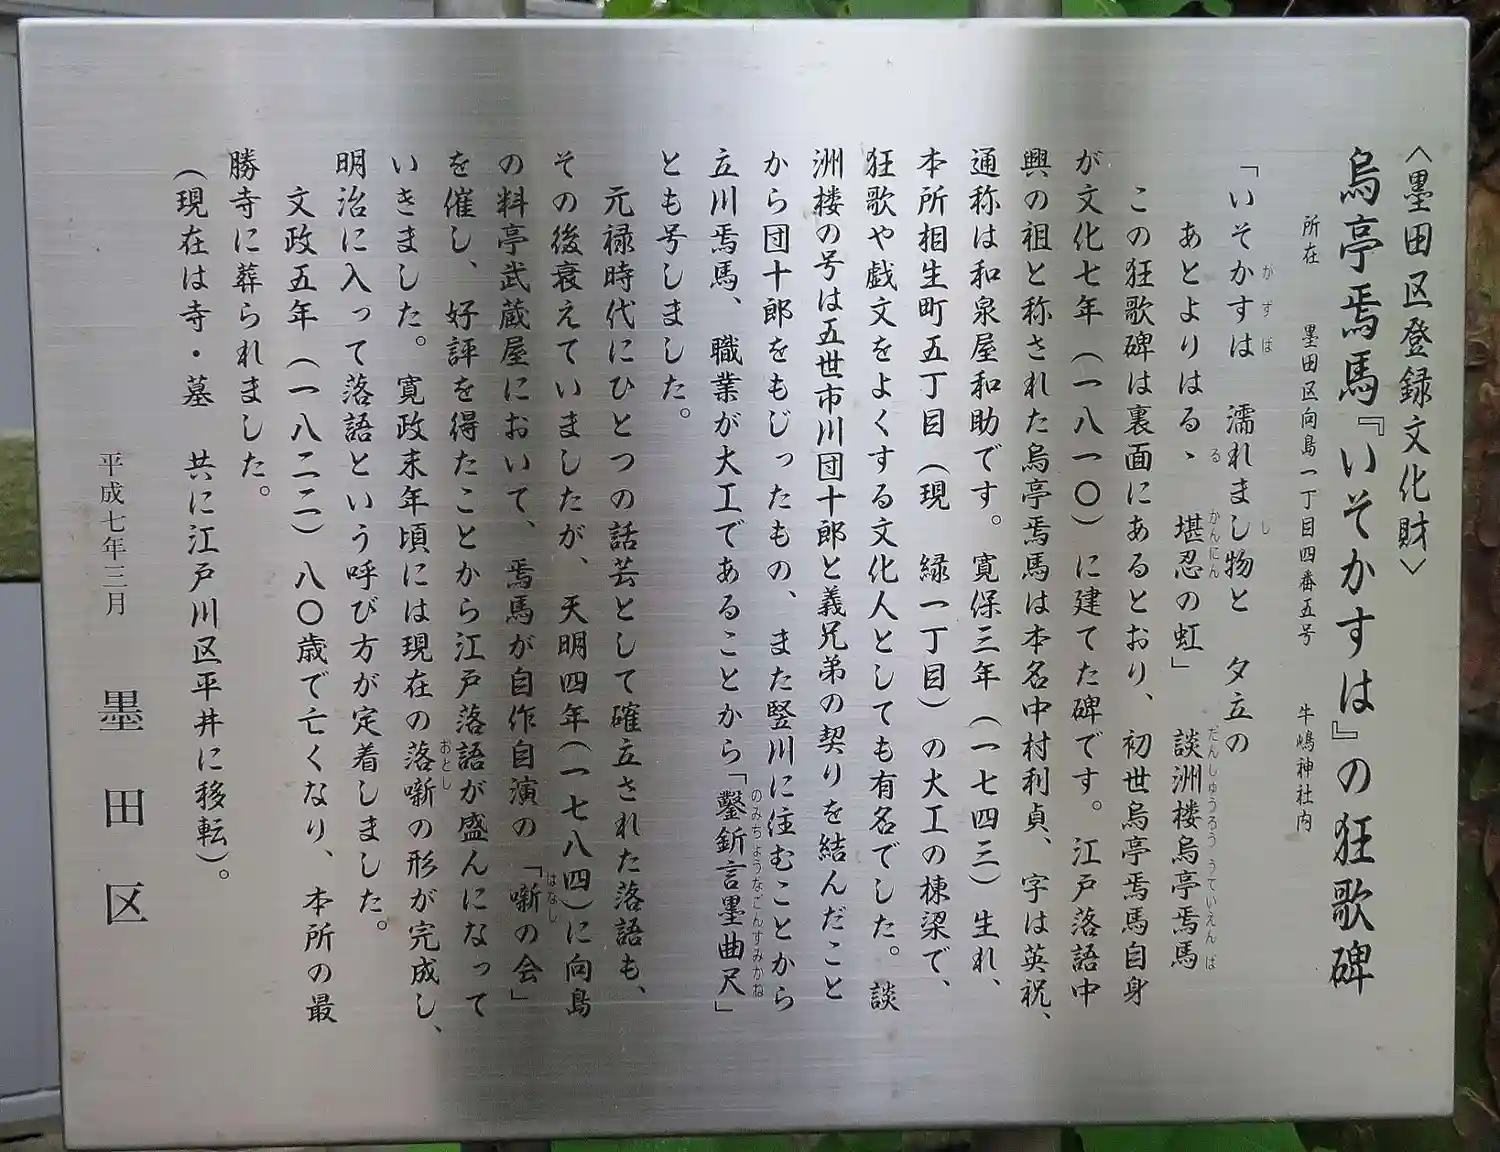 〈墨田区登録文化財〉
烏亭焉馬『いそかすは』の狂歌碑
所在　墨田区向島一丁目四番五号　牛嶋神社内
「いそかすは　濡れまし物と　夕立の
あとよりはるゝ　堪忍の虹」　談洲楼烏亭焉馬
この狂歌碑は裏面にあるとおり、初世烏亭焉馬自身
が文化七年（一八一〇）に建てた碑です。江戸落語中
興の祖と称された烏亭焉馬は本名中村利貞、字は英祝、
通称は和泉屋和助です。寛保三年（一七四三）生れ、
本所相生町五丁目（現　緑一丁目）の大工の棟梁で、
狂歌や戯文をよくする文化人としても有名でした。談
洲楼の号は五世市川団十郎と義兄弟の契りを結んだこと
から団十郎をもじったもの、また竪川に住むことから
立川焉馬、職業が大工であることから「鑿釿言墨曲尺」
とも号しました。
元禄時代にひとつの話芸として確立された落語も、
その後衰えていましたが、天明四年（一七八四）に向島
の料亭武蔵屋において、焉馬が自作自演の「噺の会」
を催し、好評を得たことから江戸落語が盛んになって
いきました。寛政末年頃には現在の落噺の形が完成し、
明治に入って落語という呼び方が定着しました。
文政五年（一八二二）八〇歳で亡くなり、本所の最
勝寺に葬られました。
（現在は寺・墓　共に江戸川区平井に移転）。
平成七年三月　墨田区